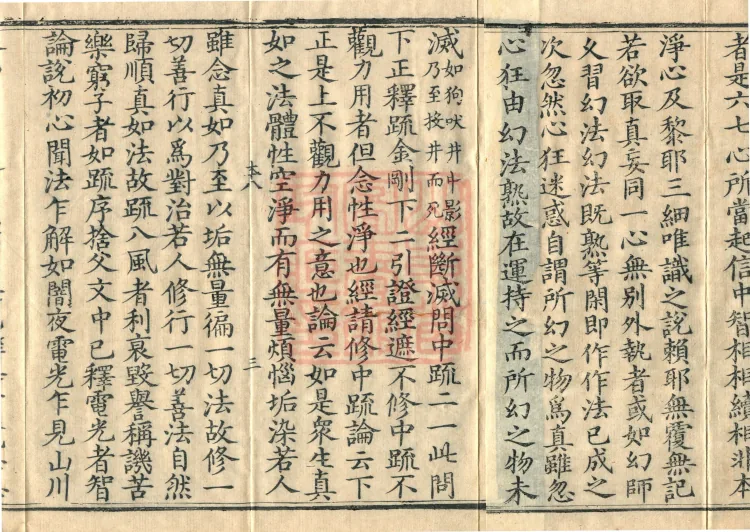 者是六七心所當起信中智相相續相非本
淨心及黎耶三細唯識之說賴耶無覆無記
若欲取真妄同一心無別外執者或如幻師
久習幻法幻法既熟等閑即作作法已成之
次忽然心狂迷惑自謂所幻之物為真雖忽
心狂由幻法熟故在運持之而所幻之物未
滅如狗吠井中影乃至投井而死經斷滅問中疏二一此問
下正釋疏金剛下二引證經遮不修中疏不
觀力用者但念性淨也經請修中疏論云下
正是上不觀力用之意也論云如是眾生真
如之法體性空淨而有無量煩惱垢染若人
本八 三
雖念真如乃至以垢無量徧一切法故修一
切善行以為對治若人修行一切善法自然
歸順真如法故疏八風者利哀毀譽稱譏苦
樂窮子者如疏序捨父文中已釋電光者智
論說初心聞法乍解如闇夜電光乍見山川